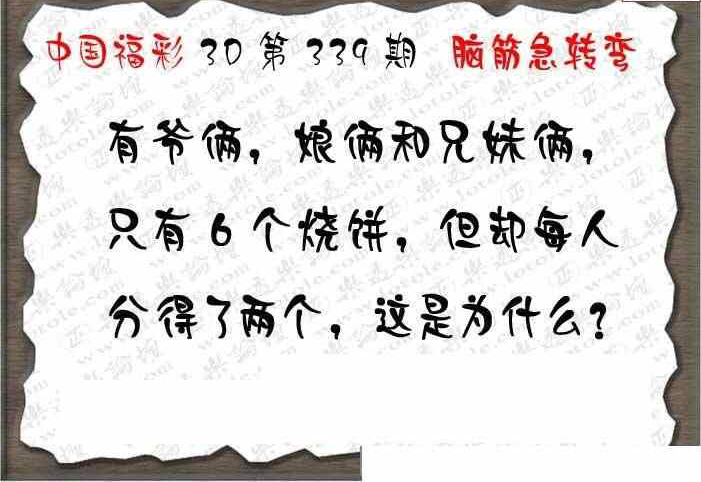 中国福彩 3D 第 339 期 脑筋急转弯
有爷俩，娘俩和兄妹俩，
只有 6 个烧饼，但却每人
分得了两个，这是为什么？